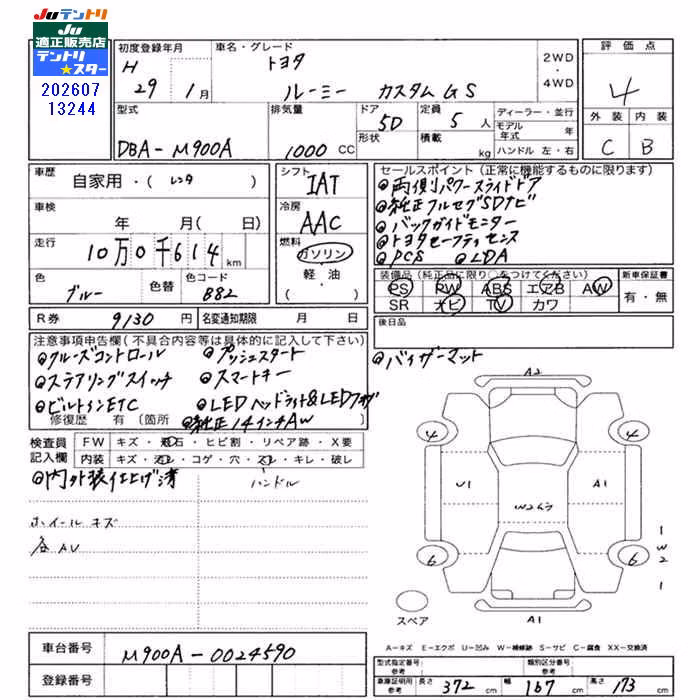 JUテントリ
JU
適正販売店
テントリ
★スター
202607
13244
初度登録年月
H 29年 1月
車名・グレード
トヨタ
ルーミー カスタムGS
2WD
・
4WD
評価点
4
外装 内装
C B
型式
DBA-M900A
排気量
1000 CC
ドア 5D
形状
定員 5人
積載 kg
ディーラー・並行
モデル年式 年
ハンドル 左・右
車歴 自家用・(レンタ)
車検 年 月(日)
走行 10万0千614km
色 ブルー 色替
色コード B82
シフト IAT
冷房 AAC
燃料 ガソリン
・
軽油
( )
セールスポイント(正常に機能するものに限ります)
◎両側パワースライドドア
◎純正フルセグSDナビ
◎バックガイドモニター
◎トヨタセーフティセンス
◎PCS ◎LDA
装備品(純正品に限り○をつけてください)
PS PW ABS エアB AW
SR ナビ TV カワ
新車保証書
有・無
R券 9130円 名変通知期限 月 日
後日品
注意事項申告欄(不具合内容等は具体的に記入して下さい)
◎クルーズコントロール ◎プッシュスタート
◎ステアリングスイッチ ◎スマートキー
◎ビルトインETC ◎LEDヘッドライト&LEDフォグ
修復歴 有(箇所 ◎純正14インチAW)
◎バイザーマット
検査員
記入欄
FW キズ・飛石・ヒビ割・リペア跡・X要
内装 キズ・汚レ・コゲ・穴・スレ・キレ・破レ
◎内外装仕上げ済
ハンドル
ホイールキズ
各AU
A2
4 4
U1 A1
W2
6 6
1
W
2
1
A1
スペア
A-キズ E-エクボ U-凹み W-補修跡 S-サビ C-腐食 XX-交換済
車台番号 M900A-0024590
登録番号
型式指定番号 参考
類別区分番号 参考
車庫証明用 参考
長さ 372cm 幅 167cm 高さ 173cm